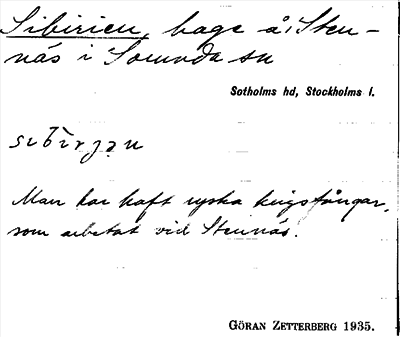 Sibirien, hage å Sten-
näs i Sorunda sn
Sotholms hd, Stockholms l.
Man har haft ryska krigsfångar,
som arbetat vid Stennäs.
GÖRAN ZETTERBERG 1935.